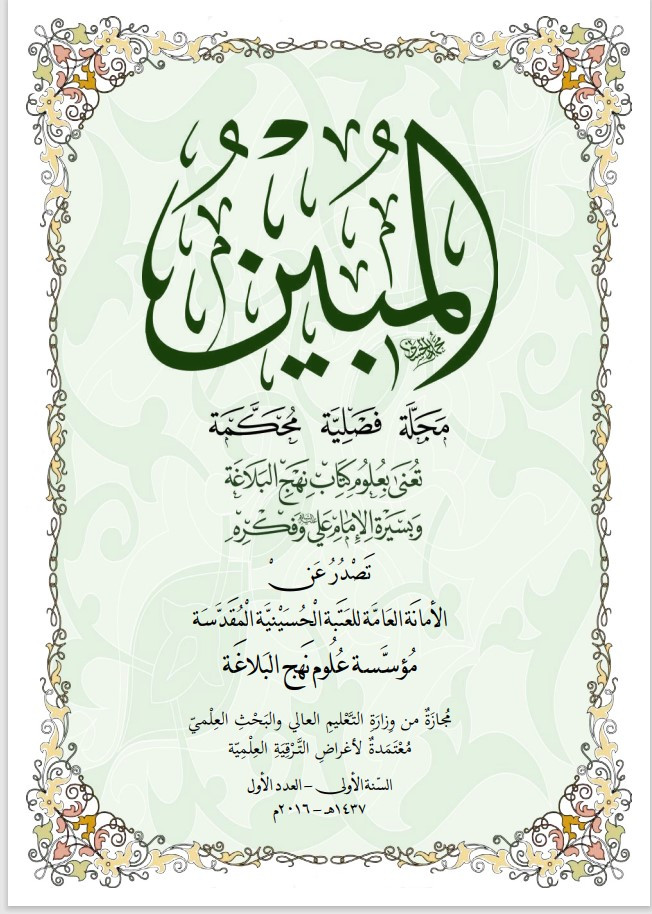 المُبِين
مَجَلَّة فَصْلِيَّة مُحَكَّمَة
تُعْنَى بِعُلُومِ كِتَابِ نَهْجِ البَلَاغَة
وَبِسِيْرَةِ الإِمَامِ عَلِيٍّ وَفِكْرِهِ
تَصْدُرُ عَنْ
الأَمَانَة العَامَّة للعَتَبة الْحُسَيْنِيَّة الْمُقَدَّسَة
مُؤَسَّسَة عُلُوم نَهج البَلَاغَة
مُجازَةٌ من وِزارَةِ التَّعْليمِ العالي والبَحْثِ العِلْميّ
مُعْتَمَدةٌ لأغراضِ التَّرْقِيَةِ العِلْمِيَّة
السَّنة الأولى – العدد الأول
١٤٣٧هـ – ٢٠١٦م